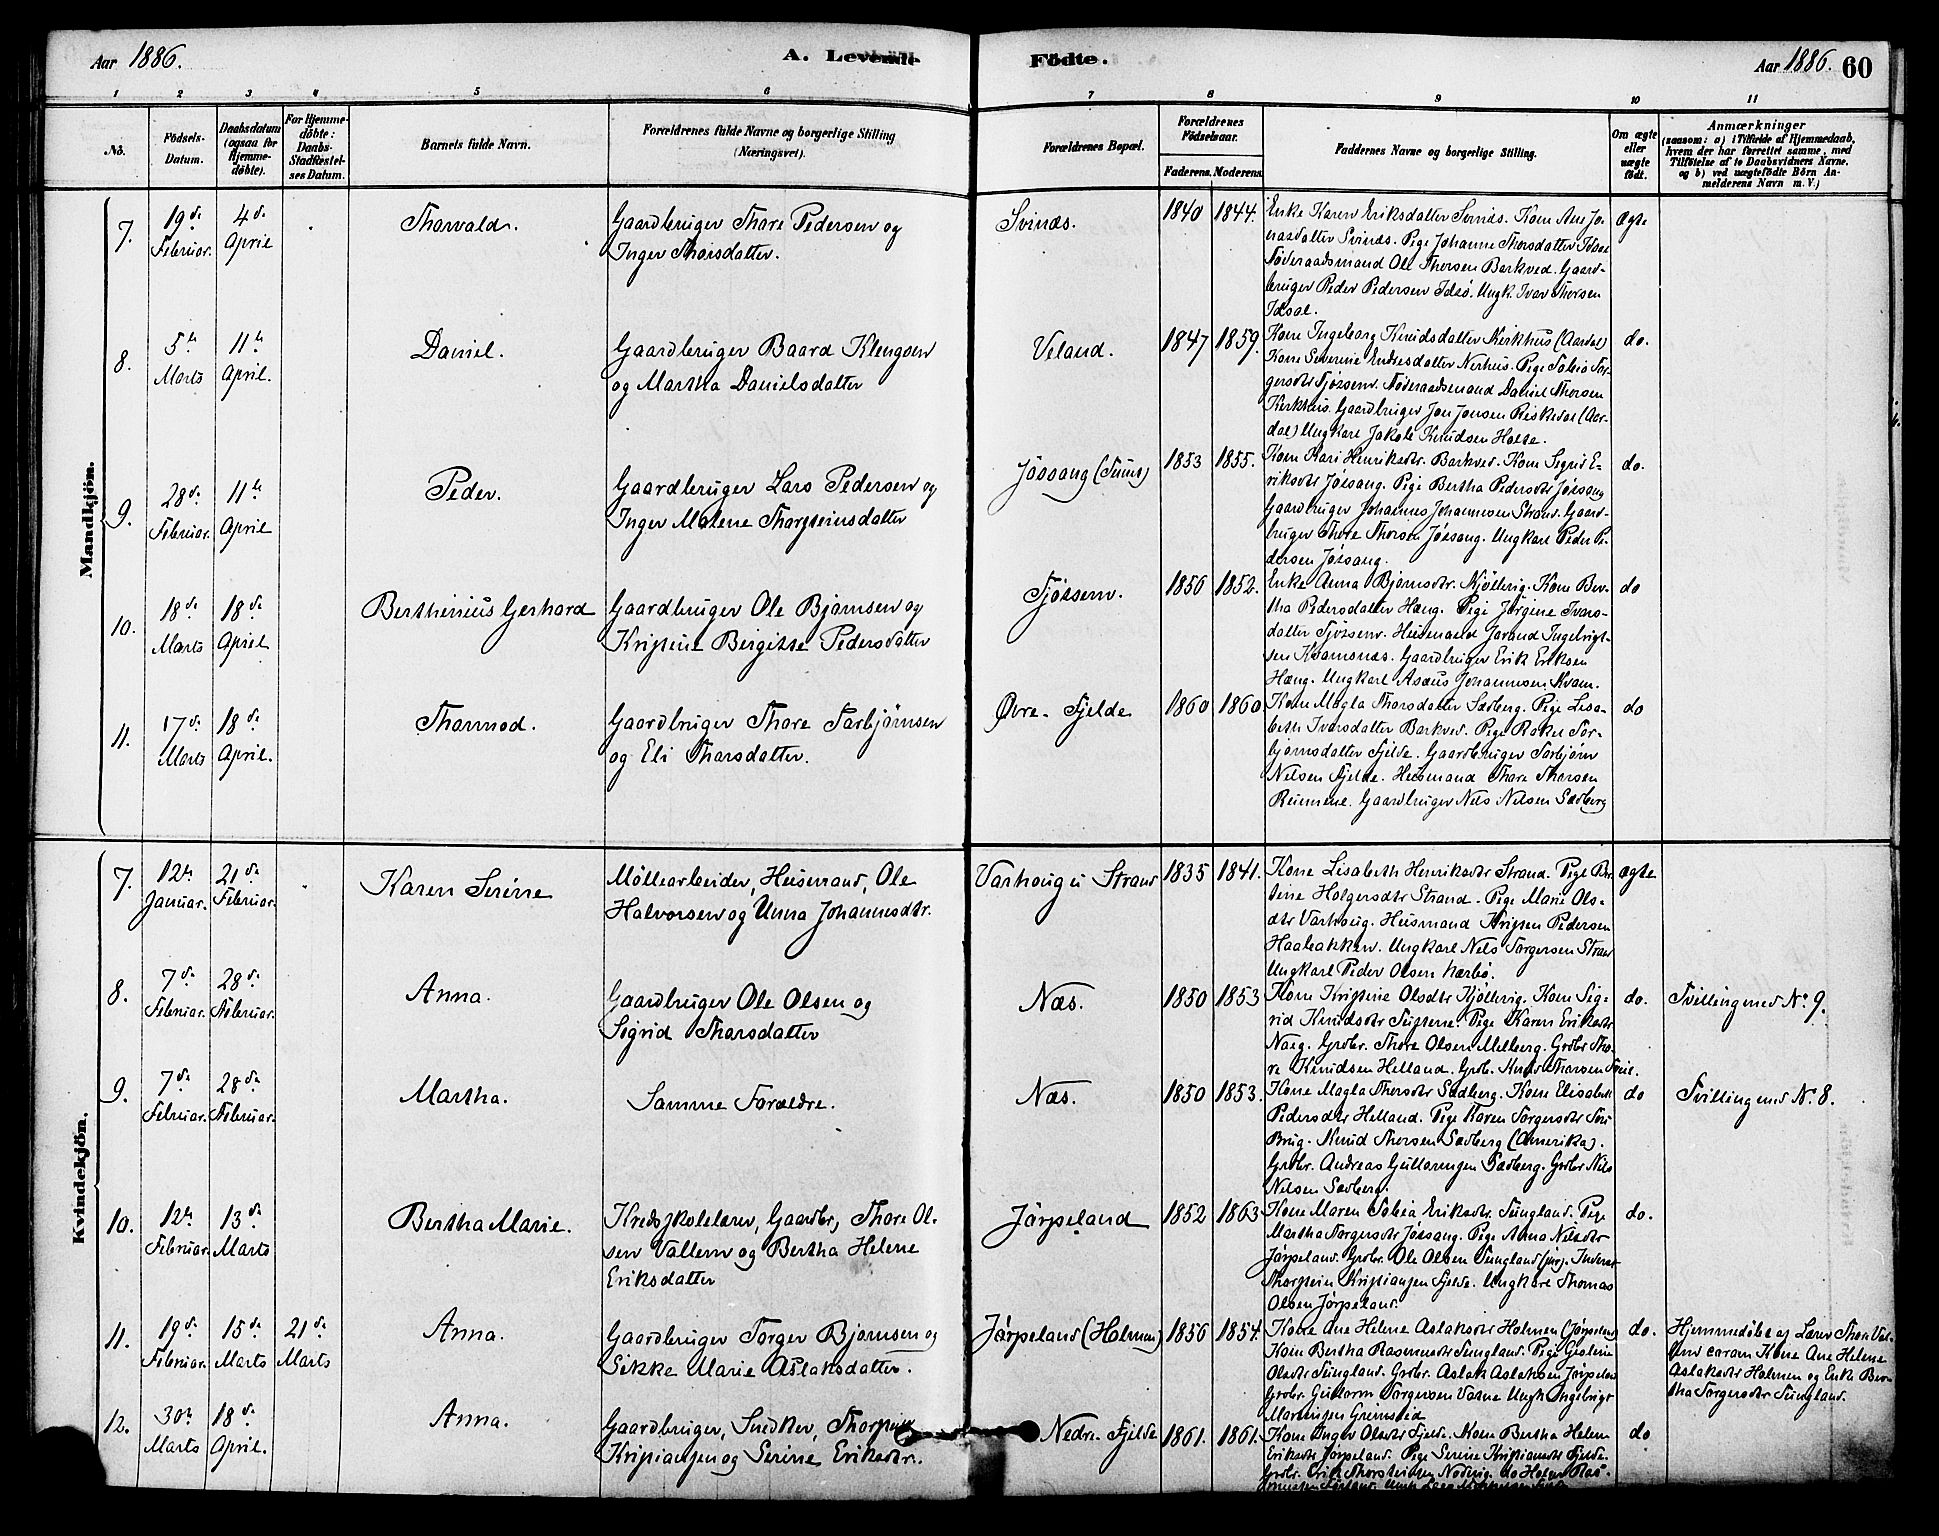 Aar 1886.
A. Levende
Födte.
Aar 1886.
60
1 2 3 4 5 6 7 8 9 10 11
No.
Födsels-
Datum.
Daabsdatum
(ogsaa for
Hjemme-
döbte).
For Hjemme-
döbte:
Daabs-
Stadfæstel-
ses Datum.
Barnets fulde Navn.
Forældrenes fulde Navne og borgerlige Stilling
(Næringsvei).
Forældrenes Bopæl.
Forældrenes
Födselsaar.
Faderens. Moderens.
Faddernes Navne og borgerlige Stilling.
Om ægte
eller
uægte
födt.
Anmærkninger
(saasom: a) i Tilfælde af Hjemmedaab,
hvem der har forrettet samme, med
Tilföielse af to Daabsvidners Navne.
og b) ved uægtefödte Börn An-
melderens Navn m. V.)
Mandkjön.
7.
19de
Februar.
4de
April
Thorvald.
Gaardbruger Thore Pedersen og
Inger Thorsdatter.
Svinæs.
1840 1844.
Enke Karen Eriksdatter Svinæs. Kone Ane Jo-
nasdatter Svinæs. Pige Johanne Thorsdatter Idsal
Föderaadsmand Ole Thorsen Barkved. Gaard-
bruger Peder Pedersen Idsö. Ungk. Ivar Thorsen
Idsal.
Ægte
8.
5te
Marts
11te
April.
Daniel.
Gaardbruger Baard Klengsen
og Martha Danielsdatter
Veland.
1847 1859.
Kone Ingeborg Knudsdatter Kirkhus (Aardal)
Kone Severine Endresdatter Nerhus. Pige Tobia Tor-
gersdtr Tjössem. Föderaadsmand Daniel Thorsen
Kirkhus. Gaardbruger Jon Jonsen Riskedal (Aar-
dal) Ungkarl Jakob Knudsen Halse.
do.
9.
28de
Februar.
11te
April
Peder.
Gaardbruger Lars Pedersen og
Inger Malene Thorsteinsdatter
Jössang (Tunet)
1853 1855.
Kone Kari Henriksdtr. Barkved. Kone Sigrid E-
riksdtr Jössang. Pige Bertha Pedersdtr Jössang
Gaardbruger Johannes Johannesen Strand. Gaard-
bruger Thore Thorsen Jössang. Ungkarl Peder Pe-
dersen Jössang.
do.
10.
18de
Marts
18de
April
Berthinius Gerhard
Gaardbruger Ole Bjørnsen og
Kristine Bergitte Pedersdatter
Tjössem.
1850 1852.
Enke Anna Bjørnsdtr. Kjöllevig. Kone Ber-
tha Pedersdatter Hæng. Pige Jörgine Ivars-
datter Tjössem. Husmand Jorand Ingebrigt-
sen Kvamsnæs. Gaardbruger Erik Eriksen
Hæng. Ungkarl Asæus Johannesen Kvam.
do
11.
17de
Marts
18de
April.
Thormod.
Gaardbruger Thore Torbjørnsen
og Eli Thorsdatter.
Øvre-Fjelde
1860 1860
Kone Magla Thorsdatter Sædberg. Pige Lisa-
beth Ivarsdatter Barkved. Pige Rakel Tor-
bjørnsdatter Fjelde. Gaardbruger Torbjørn
Nilsen Fjelde. Husmand Thore Thorsen
Reinene. Gaardbruger Nels Nelsen Sædberg
do
Kvindekjön.
7.
12te
Januar.
21de
Februar.
Karen Serine
Möllearbeider, Husmand, Ole
Halvorsen og Anna Johannesdtr.
Varhoug i Strand
1835 1841.
Kone Lisabeth Henriksdtr Strand. Pige Ber-
tine Holgersdtr Strand. Pige Marie Ols-
dtr Varhoug. Husmand Kristen Pedersen
Haabakken. Ungkarl Nels Torgersen Strand
Ungkarl Peder Olsen Nærbö.
ægte
8.
7de
Februar.
28de
Februar.
Anna.
Gaardbruger Ole Olsen og
Sigrid Thorsdatter
Næs.
1850 1853
Kone Kristine Olsdtr Kjöllevig. Kone Sig-
rid Knudsdtr Tungene. Pige Karen Eriksdtr
Norg. Grdbr. Thore Olsen Melberg. Grdbr Tho-
re Knudsen Helland. Grdb. Knud Thorsen
do.
Tvilling med No. 9.
9.
7de
Februar.
28de
Februar.
Martha.
Samme Forældre.
Næs.
1850 1853.
Kone Magla Thorsdtr Sædberg. Kone Elisabeth
Pedersdtr Helland. Pige Karen Torgersdtr
Brug. Knud Thorsen Sædberg (Amerika).
Grdbr. Andreas Guttormsen Sædberg. Grdbr Nils
Nelsen Sædberg.
do
Tvilling med No. 8.
10.
12te
Februar.
13de
Marts
Bertha Marie.
Kredsskolelærer, Gaardbr, Thore Ol-
sen Vallem og Bertha Helene
Eriksdatter
Jørpeland
1852 1863
Kone Maren Tobia Eriksdtr Tungland. Pige
Martha Torgersdtr Jössang. Pige Anna Nilsdtr
Jørpeland. Grdbr. Ole Olsen Tungland (jun). Inderst
Thorstein Kristiansen Fjelde. Ungkarl Thomas
Olsen Jørpeland.
do.
11.
19de
Februar.
15de
Marts
21de
Marts
Anna.
Gaardbruger Torger Bjørnsen og
Sikke Marie Aslaksdatter.
Jørpeland (Holmen)
1856 1854.
Kone Ane Helene Aslaksdtr Holmen (Jørpeland)
Kone Bertha Rasmusdtr Tungland. Pige Gesline
Olsdtr Tungland. Grdbr. Aslak Aslaksen Jørpeland
Grdbr. Guttorm Torgersen Vatne Ungk. Ingebrigt
Martinsen Grimslid
do.
Hjemmedöbt af Lærer Thore Val-
lem coram Kone Ane Helene
Aslaksdtr Holmen og Enke Ber-
tha Torgersdtr Tungland.
12.
30te
Marts
18de
April.
Anna.
Gaardbruger, Snedker, Thorstein
Kristiansen og Serine Eriksdtr.
Nedre-Fjelde
1861. 1861.
Kone Inger Olsdtr Fjelde. Kone Bertha Helene
Eriksdtr Jørpeland. Pige Serine Kristiansdtr Fjelde.
Grdbr. Erik Thorsteinsen Nödvig. do Holger Ras-
do